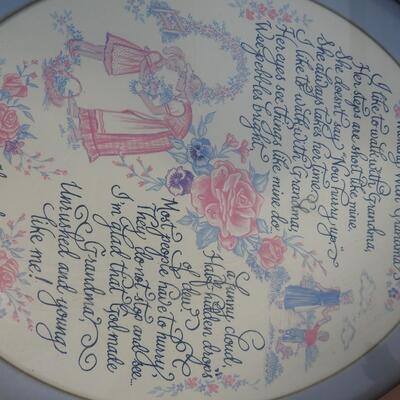 Walking With Grandma
I like to walk with Grandma,
Her steps are short like mine.
She doesn't say "Now hurry up."
She always takes her time.
I like to walk with Grandma,
Her eyes see things like mine do
Wee pebbles bright,
a funny cloud,
Half hidden drops
of dew.
Most people have to hurry
They do not stop and see...
I'm glad that God made
Grandma
Unrushed and young
like me!